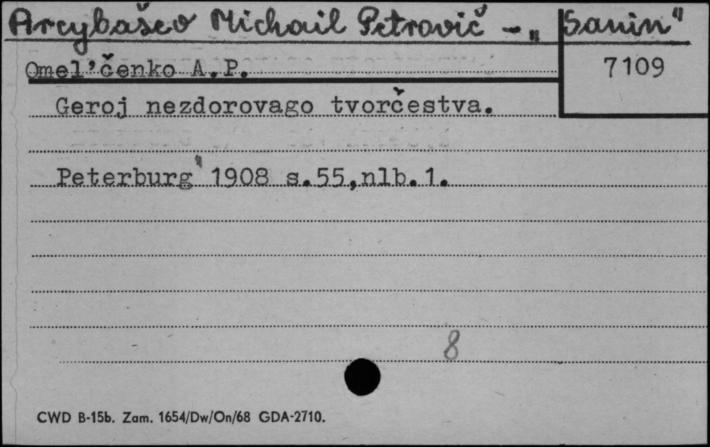 Arcybašev Michail Petrovič - „Sanin"
Omel'čenko A.P.
7109
Geroj nezdorovago tvorčestva.
Peterburg" 1908 s.55,nlb.1.
8
CWD B-15b. Zam. 1654/Dw/On/68 GDA-2710.